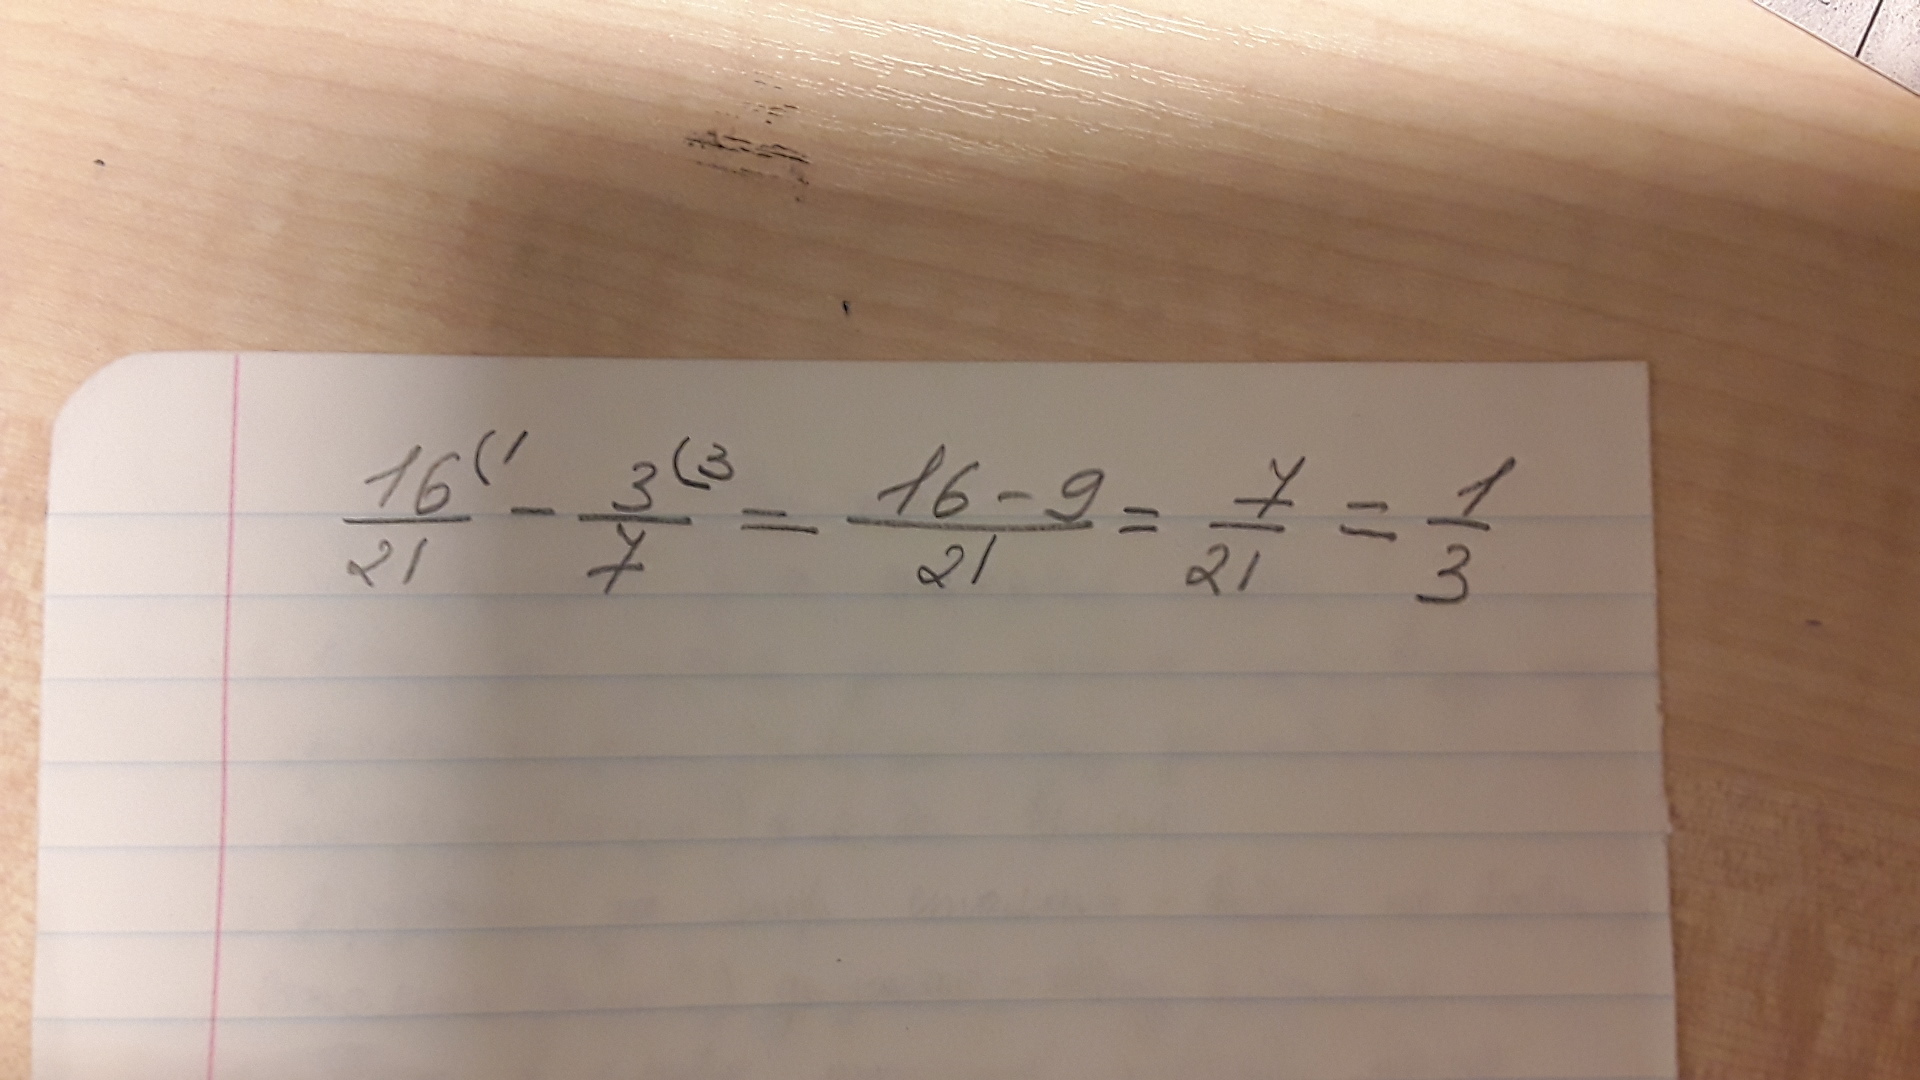 16(1/21 - 3(3/7 = 16-9/21 = 7/21 = 1/3